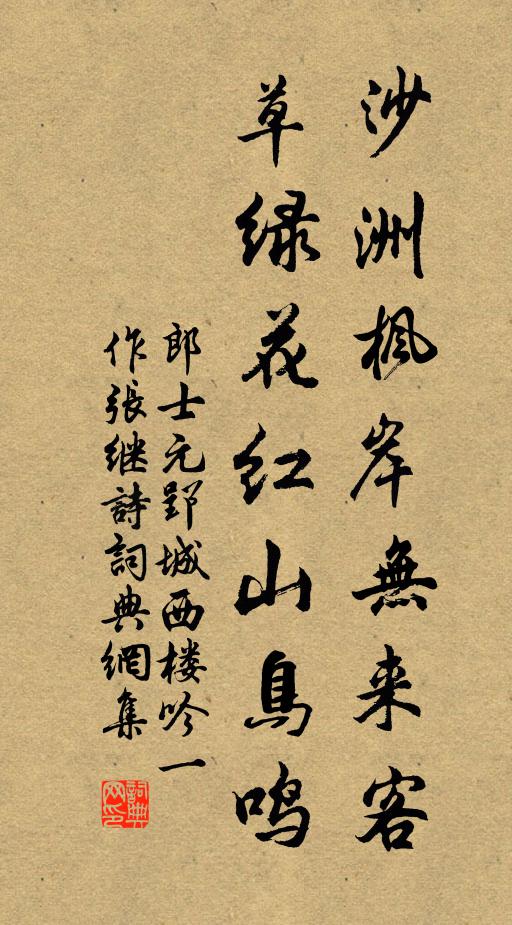 沙洲枫岸無来客
草绿花红山鳥鸣
郎士元郢城西楼吟一
作張继詩詞典網集
詞典网印